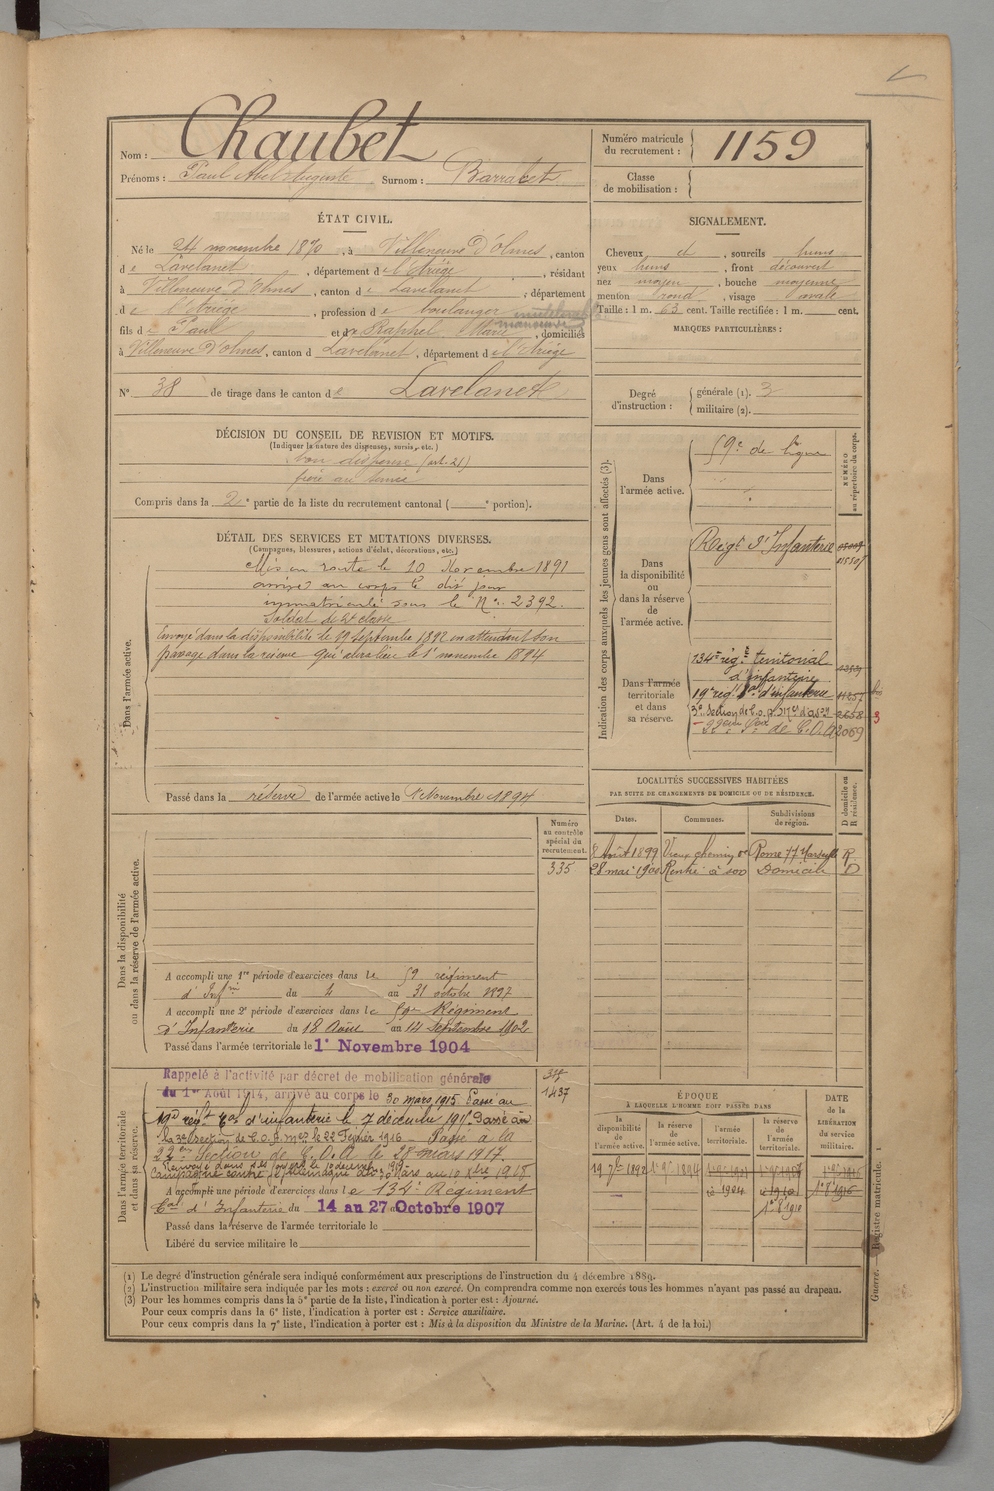 Nom : Chaubet
Prénoms : Paul Abel Auguste Surnom : Barrabet
Numéro matricule du recrutement : 1159
Classe de mobilisation :
ÉTAT CIVIL.
Né le 24 novembre 1870, à Villeneuve D'Olmes, canton
de Lavelanet, département de l'Ariège, résidant
à Villeneuve D'Olmes, canton de Lavelanet, département
de l'Ariège, profession de boulanger
manoeuvre
fils de Paul et de Raphel Marie, domiciliés
à Villeneuve D'Olmes, canton de Lavelanet, département de l'Ariège
N° 38 de tirage dans le canton de Lavelanet
SIGNALEMENT.
Cheveux et, sourcils bruns
yeux bruns, front découvert
nez moyen, bouche moyenne
menton rond, visage ovale
Taille : 1 m. 63 cent. Taille rectifiée : 1 m. cent.
MARQUES PARTICULIÈRES :
Degré d'instruction : générale (1). 3
militaire (2).
DÉCISION DU CONSEIL DE REVISION ET MOTIFS.
(Indiquer la nature des dispenses, sursis, etc.)
bon dispensé (art. 21)
frère au service
Compris dans la 2e partie de la liste du recrutement cantonal ( e portion).
DÉTAIL DES SERVICES ET MUTATIONS DIVERSES.
(Campagnes, blessures, actions d'éclat, décorations, etc.)
Dans l'armée active.
Mis en route le 10 Novembre 1891
arrivé au corps le dis jour
immatriculé sous le N° 2392.
Soldat de 2e classe
Envoyé dans la disponibilité le 19 Septembre 1892 en attendant son
passage dans la réserve qui aura lieu le 1er novembre 1894
Passé dans la réserve de l'armée active le 1 Novembre 1894
Indication des corps auxquels les jeunes gens sont affectés (3).
NUMÉRO au répertoire du corps.
Dans l'armée active.
59e de ligne
Dans la disponibilité ou dans la réserve de l'armée active.
Régt d'Infanterie
Dans l'armée territoriale et dans sa réserve.
134e rég.t territorial
d'infanterie
19e rég.t t.al d'infanterie 11257
3e Section de C.O.A. 2258 3
22eme Son de C.O.A 2069
LOCALITÉS SUCCESSIVES HABITÉES
PAR SUITE DE CHANGEMENTS DE DOMICILE OU DE RÉSIDENCE.
Dates. Communes. Subdivisions de région. D domicile ou R résidence.
8 Août 1899 Vieux chemin de Rome 77 Marseille R
28 mai 1900 Rentré à son Domicile D
Numéro au contrôle spécial du recrutement.
335
Dans la disponibilité ou dans la réserve de l'armée active.
A accompli une 1re période d'exercices dans le 59 régiment
d'Infrie du 4 au 31 octobre 1897
A accompli une 2e période d'exercices dans le 59e Régiment
d'Infanterie du 18 Août au 14 Septembre 1902
Passé dans l'armée territoriale le 1er Novembre 1904
Dans l'armée territoriale et dans sa réserve.
Rappelé à l'activité par décret de mobilisation générale
du 1er Août 1914, arrivé au corps le 30 mars 1915. Passé au
19e régt t.al d'infanterie le 7 décembre 1915. Passé à
la 3e Section de C.O.A. le 22 Février 1916 Passé à la
22eme Section de C.O.A le 28 mars 1917.
Renvoyé dans ses foyers le 10 décembre 1918
Campagne contre l'Allemagne du 30 Mars au 10 Xbre 1918
A accompli une période d'exercices dans le 134e Régiment
t.al d'Infanterie du 14 au 27 Octobre 1907
Passé dans la réserve de l'armée territoriale le
Libéré du service militaire le
1437
ÉPOQUE
À LAQUELLE L'HOMME DOIT PASSER DANS
la disponibilité de l'armée active. la réserve de l'armée active. l'armée territoriale. la réserve de l'armée territoriale.
DATE de la LIBÉRATION du service militaire.
19 7bre 1892 1er 9bre 1894
1904
1er 8 1910
1er 8bre 1916
(1) Le degré d'instruction générale sera indiqué conformément aux prescriptions de l'instruction du 4 décembre 1889.
(2) L'instruction militaire sera indiquée par les mots : exercé ou non exercé. On comprendra comme non exercés tous les hommes n'ayant pas passé au drapeau.
(3) Pour les hommes compris dans la 5e partie de la liste, l'indication à porter est : Ajourné.
Pour ceux compris dans la 6e liste, l'indication à porter est : Service auxiliaire.
Pour ceux compris dans la 7e liste, l'indication à porter est : Mis à la disposition du Ministre de la Marine. (Art. 4 de la loi.)
Guerre. — Registre matricule. 1